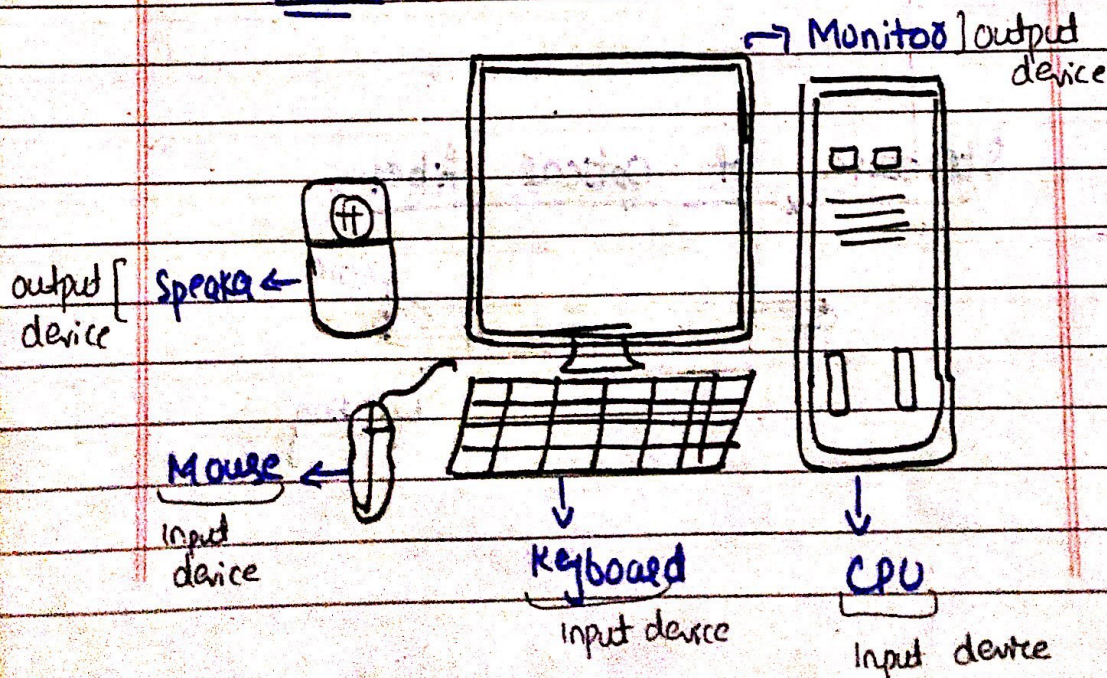 Monitor ] output
device
output [ Speaker
device
Mouse
Input
device
Keyboard
Input device
CPU
Input device